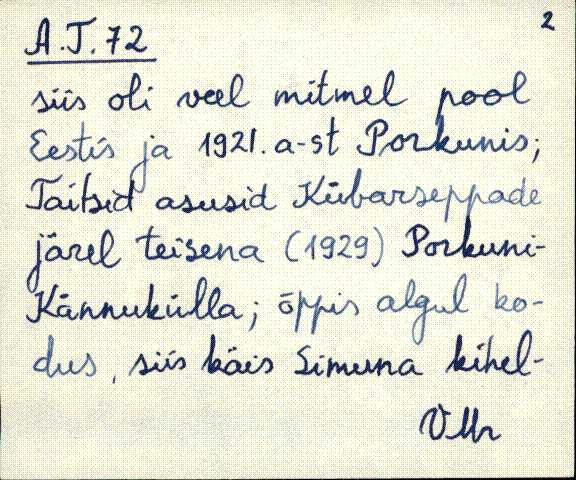 2
A.T.72
siis oli veel mitmel pool
Eestis ja 1921. a-st Porkunis;
Taitsid asusid Kübarseppade
järel teisena (1929) Porkuni-
Kännukülla; õppis algul ko-
dus, siis käis Simuna kihel-
VMr